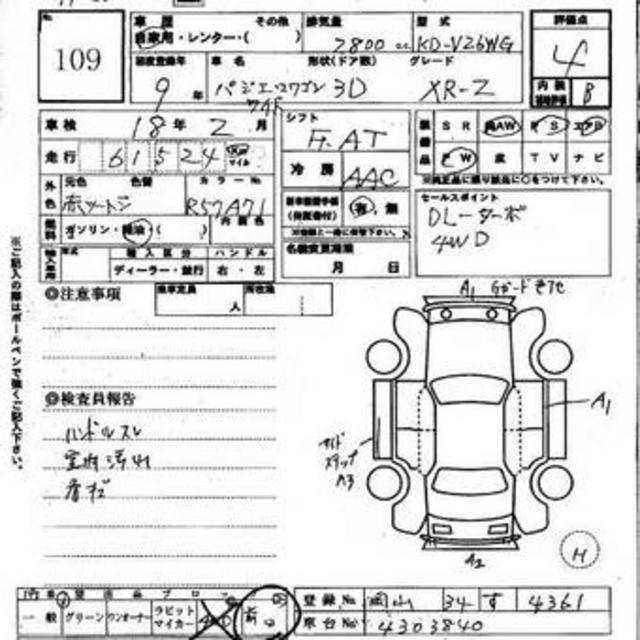 No.
109
車歴 その他
自家用・レンター・( )
排気量
2800 cc
型式
KD-V26WG
評価点
4
内装 B
初度登録年
9 年
車名
パジェロワゴン
ワイド
形状(ドア数)
3D
グレード
XR-Z
車検 18年 2月
走行 61524 マイル
外色 元色 色替 カラーNo
赤ツートン R57A71
燃料 ガソリン・軽油・( ) 内装色
輸入車用 年式 輸入区分 ハンドル
ディーラー・並行 右・左
シフト
F.AT
冷房 AAC
有・無
名義変更期限
月 日
装備品
SR AW PS エアB
PW 皮 TV ナビ
セールスポイント
DLターボ
4WD
◎注意事項
乗車定員 人
所在地
◎検査員報告
ハンドルスレ
室内汚れ
A1 Gガードキズ
A1
サイド
ステップ
A3
A2
H
※ご記入の際はボールペンで強くご記入下さい。
一般 グリーン ワンオーナー ラビットマイカー
登録No. 岡山 34 す 4361
車台No. 4303840